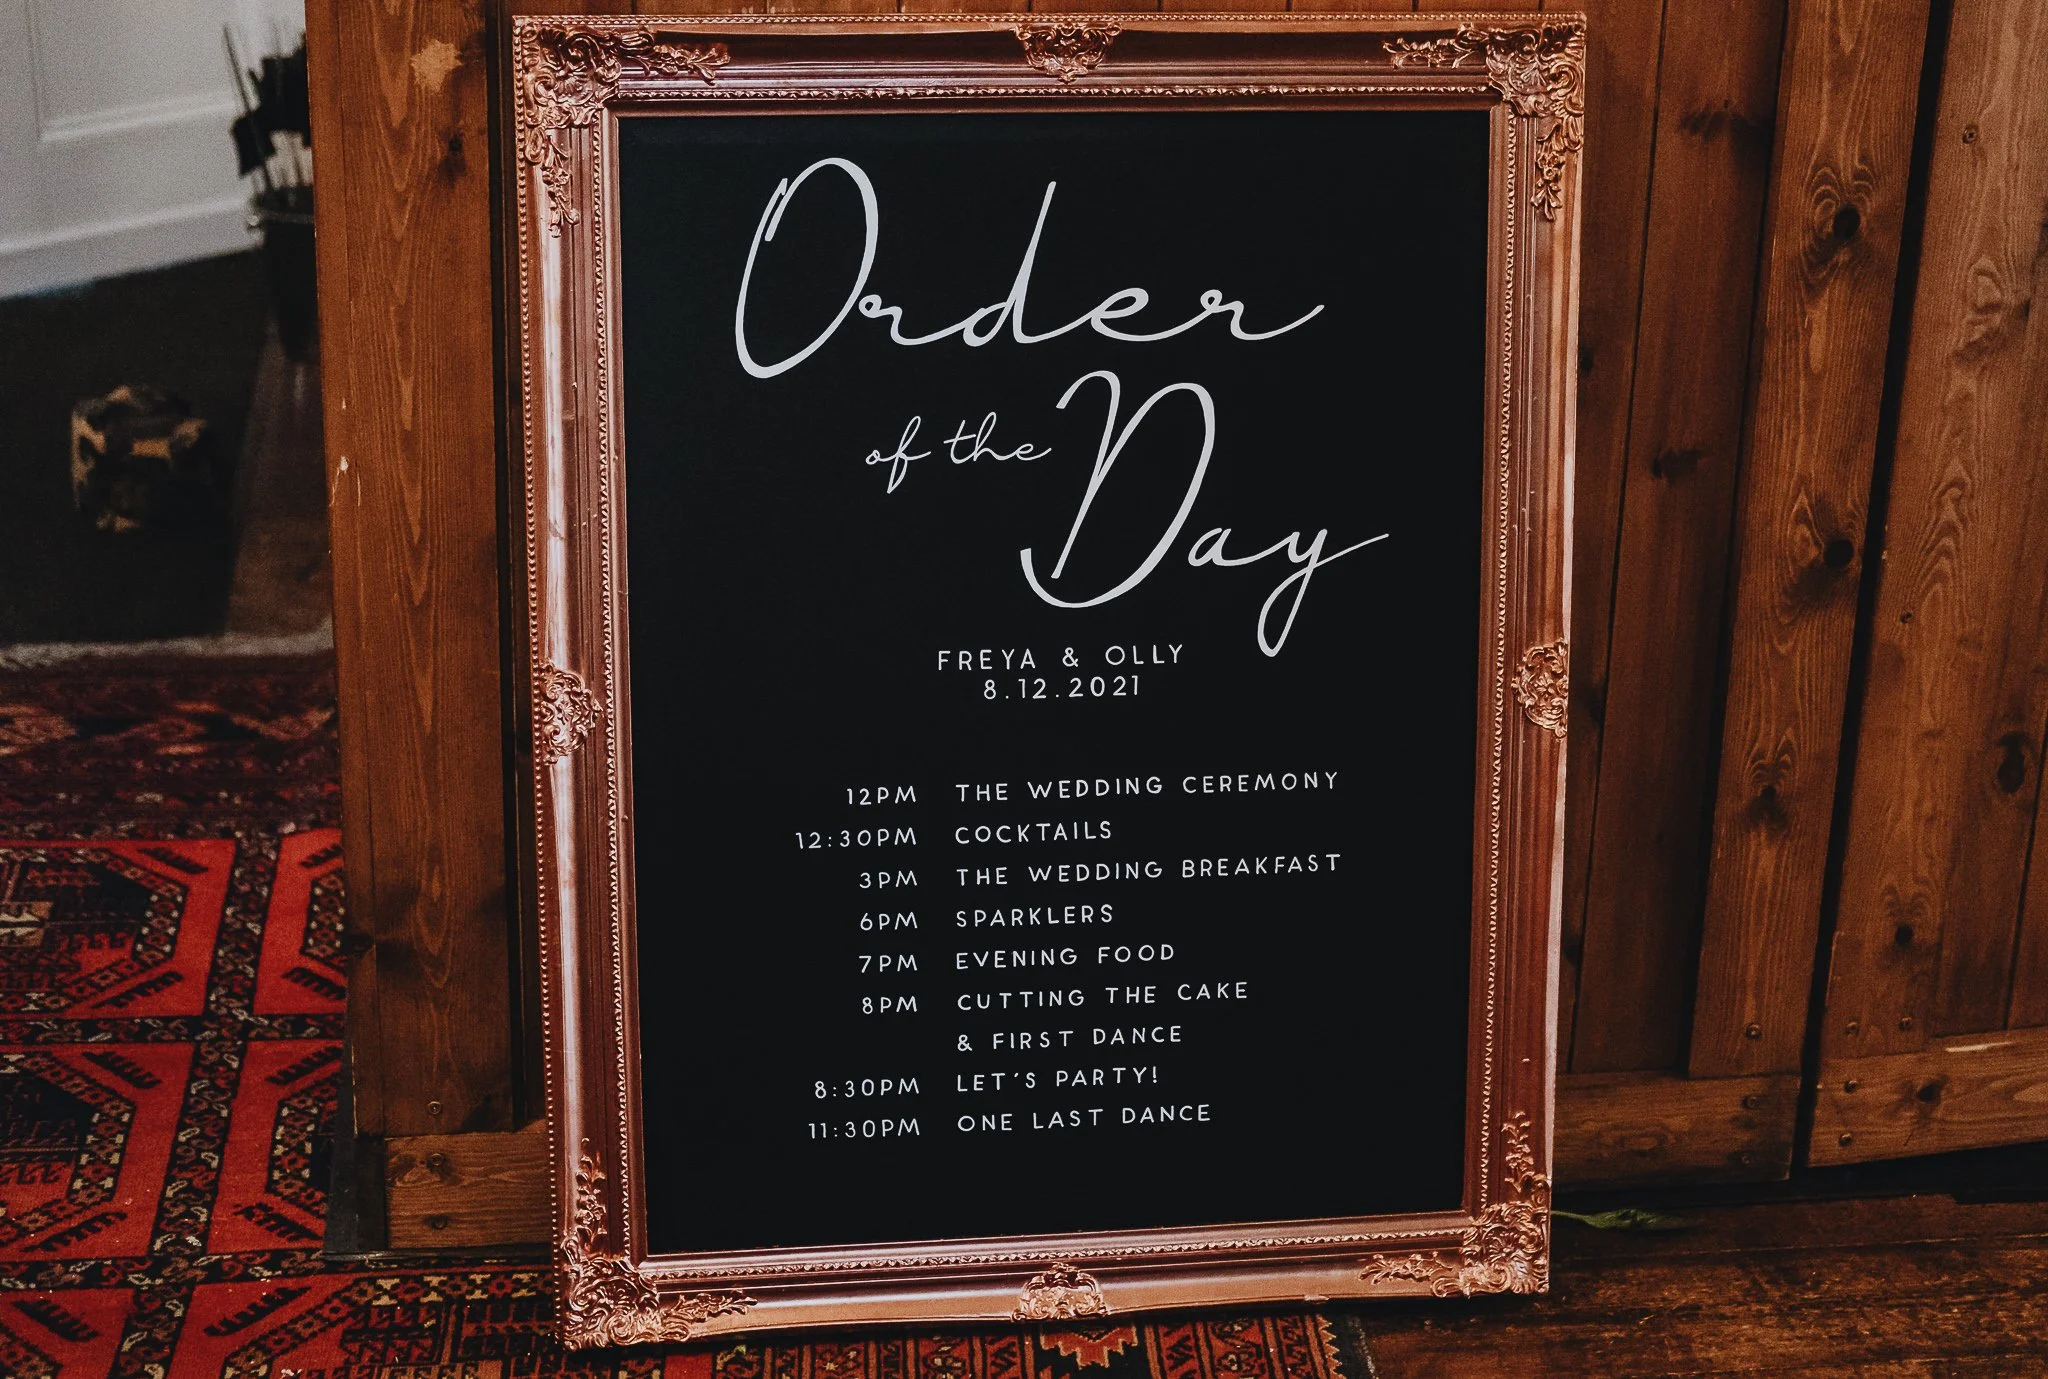 Order
of the Day
FREYA & OLLY
8.12.2021
12PM THE WEDDING CEREMONY
12:30PM COCKTAILS
3PM THE WEDDING BREAKFAST
6PM SPARKLERS
7PM EVENING FOOD
8PM CUTTING THE CAKE
& FIRST DANCE
8:30PM LET'S PARTY!
11:30PM ONE LAST DANCE